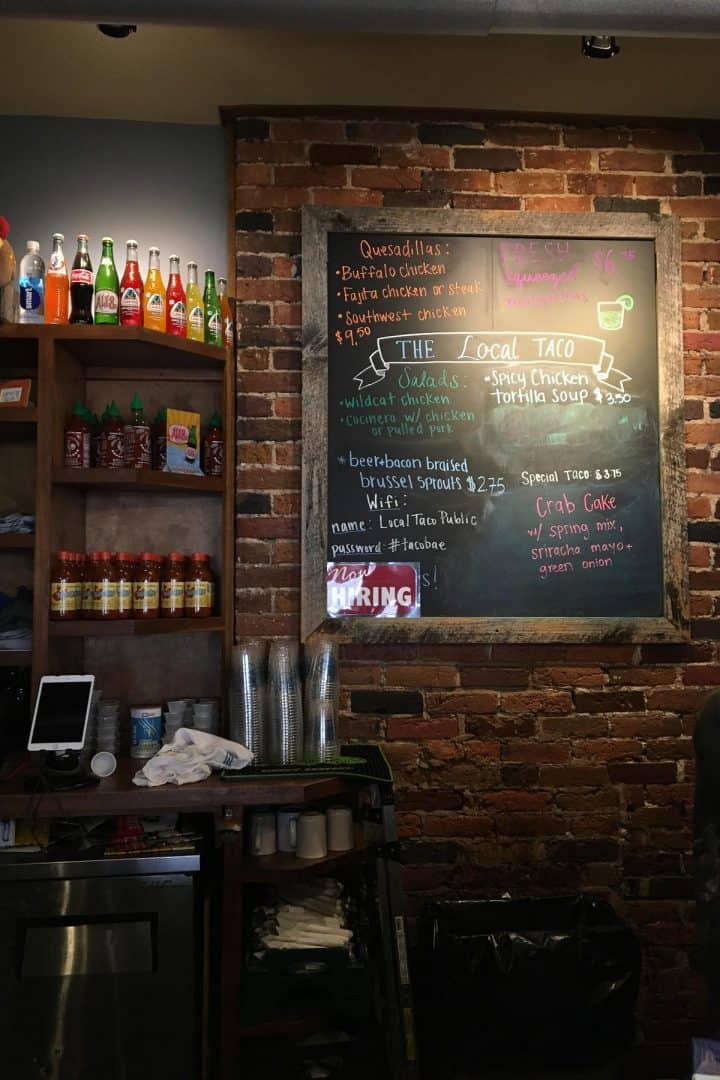 Quesadillas:
• Buffalo chicken
• Fajita chicken or steak
• Southwest chicken
$9.50
FRESH
squeezed
$6.75
THE Local TACO
Salads:
• Wildcat chicken
• Cocinero w/ chicken
or pulled pork
• Spicy Chicken
tortilla Soup $3.50
* beer+bacon braised
brussel sprouts $2.75
Wifi:
name: LocalTacoPublic
password: #tacobae
Special Taco: $3.75
Crab Cake
w/ spring mix,
sriracha mayo+
green onion
Now
HIRING
s!